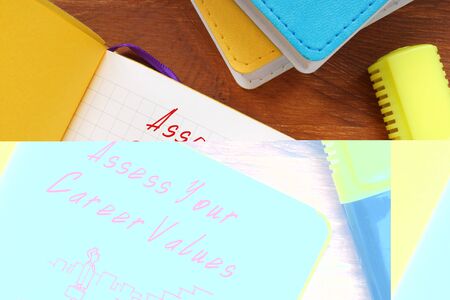 Asse
Assess Your
Career Values